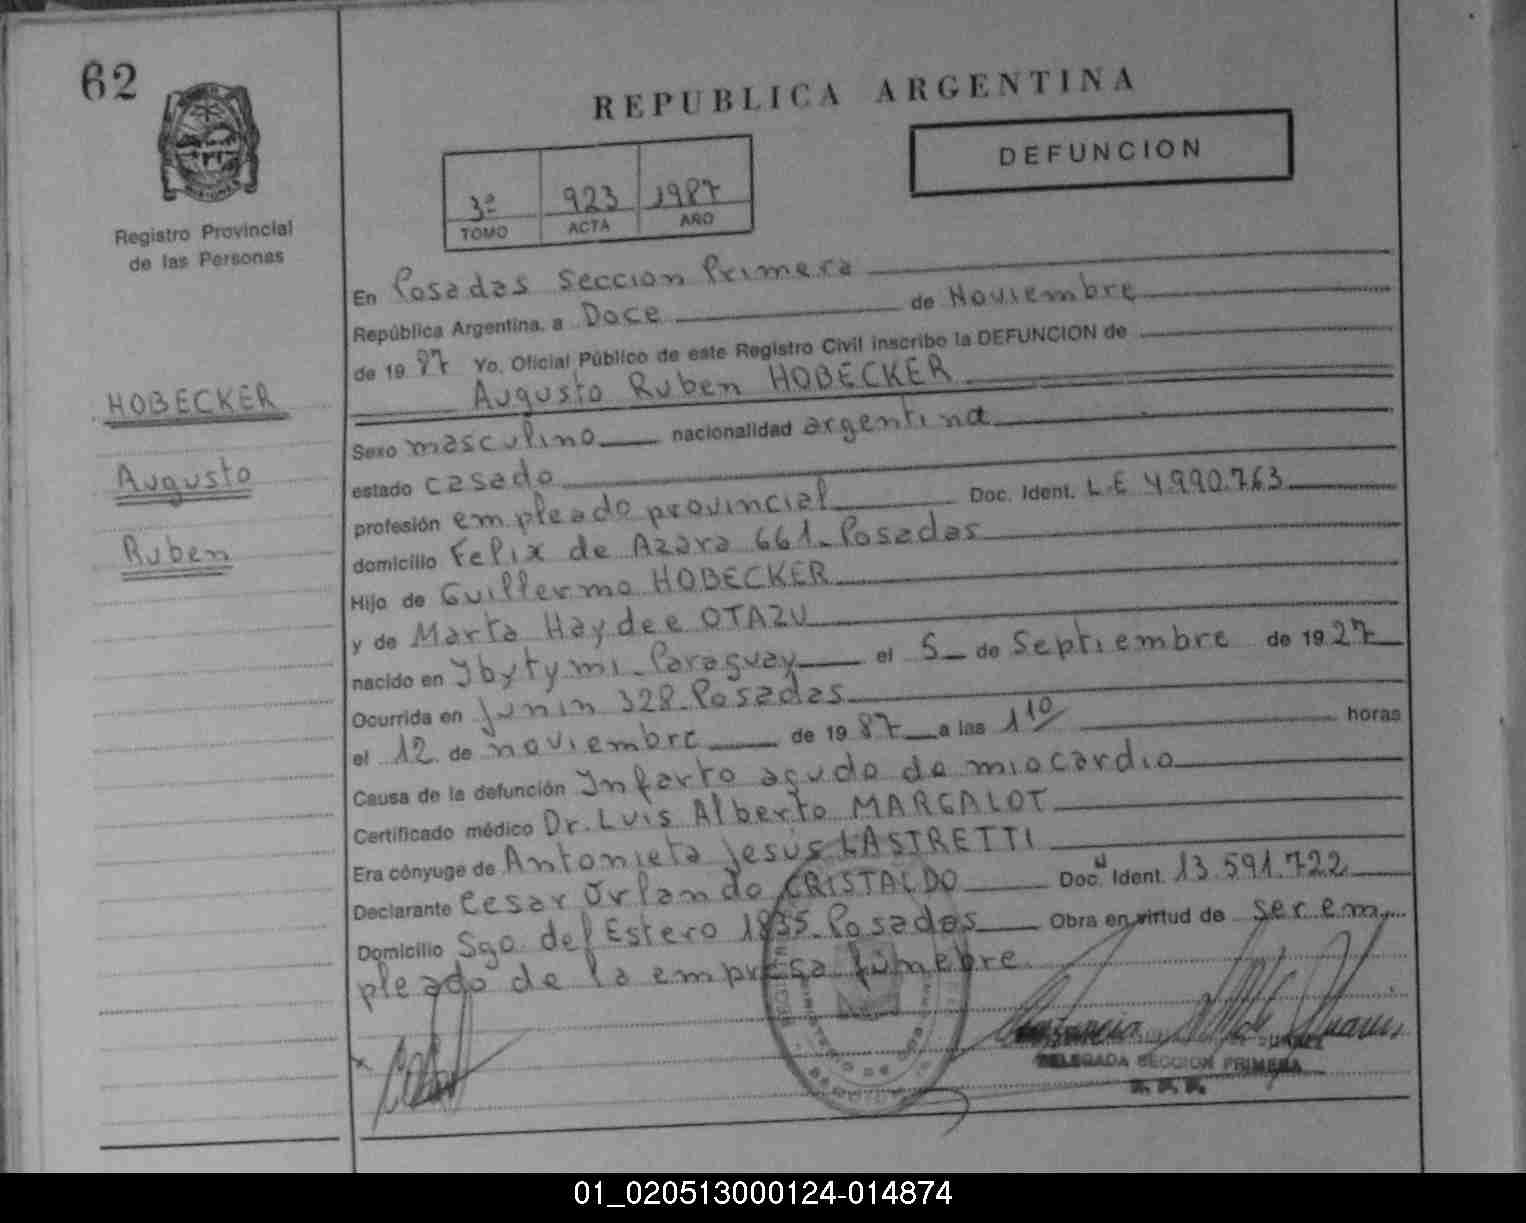 62
Registro Provincial
de las Personas
HOBECKER
Augusto
Ruben
REPUBLICA ARGENTINA
DEFUNCION
3º 923 1987
TOMO ACTA AÑO
En Posadas Seccion Primera
República Argentina, a Doce de Noviembre
de 1987 Yo, Oficial Público de este Registro Civil inscribo la DEFUNCION de
Augusto Ruben HOBECKER
Sexo masculino nacionalidad argentina
estado casado
profesión empleado provincial Doc. Ident. L.E 4.990.763
domicilio Felix de Azara 661. Posadas
Hijo de Guillermo HOBECKER
y de Marta Haydee OTAZU
nacido en Ybytymi. Paraguay el 5 de Septiembre de 1927
Ocurrida en Junin 328. Posadas
el 12 de noviembre de 1987 a las 1 10 horas
Causa de la defunción Infarto agudo de miocardio
Certificado médico Dr. Luis Alberto MARGALOT
Era cónyuge de Antonieta Jesús LASTRETTI
Declarante Cesar Orlando CRISTALDO Doc. Ident. 13.591.722
Domicilio Sgo. del Estero 1835. Posadas Obra en virtud de ser em
pleado de la empresa fúnebre.
DELEGADA SECCION PRIMERA
01_020513000124-014874